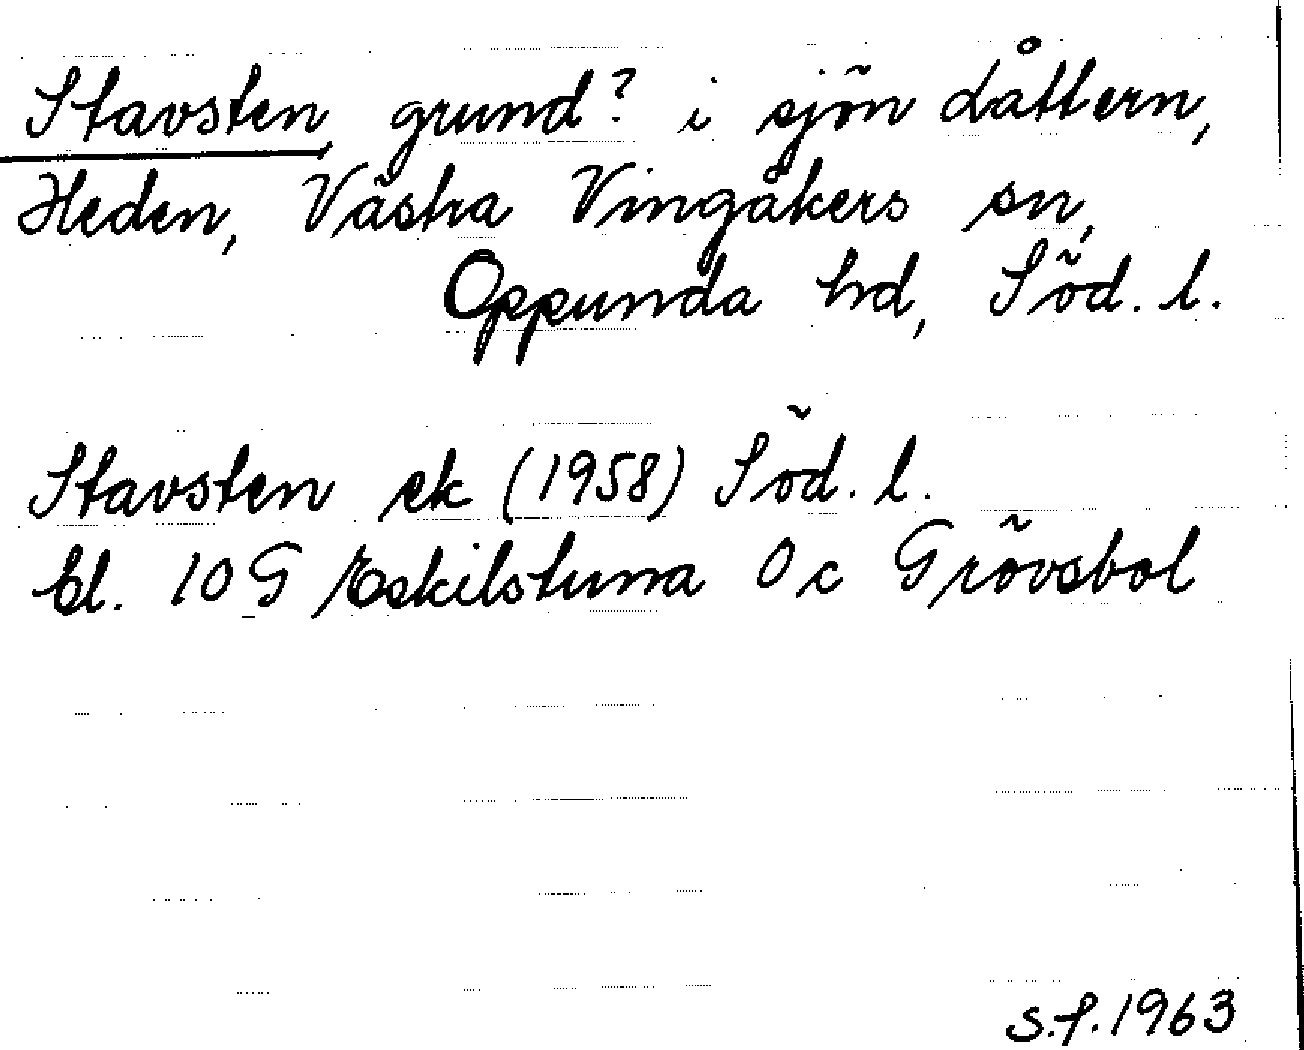 Stavsten, grund? i sjön Låttern,
Heden, Västra Vingåkers sn,
Oppunda hd, Söd. l.
Stavsten ek (1958) Söd. l.
bl. 10 G Eskilstuna 0 c Grövsbol
s.f. 1963